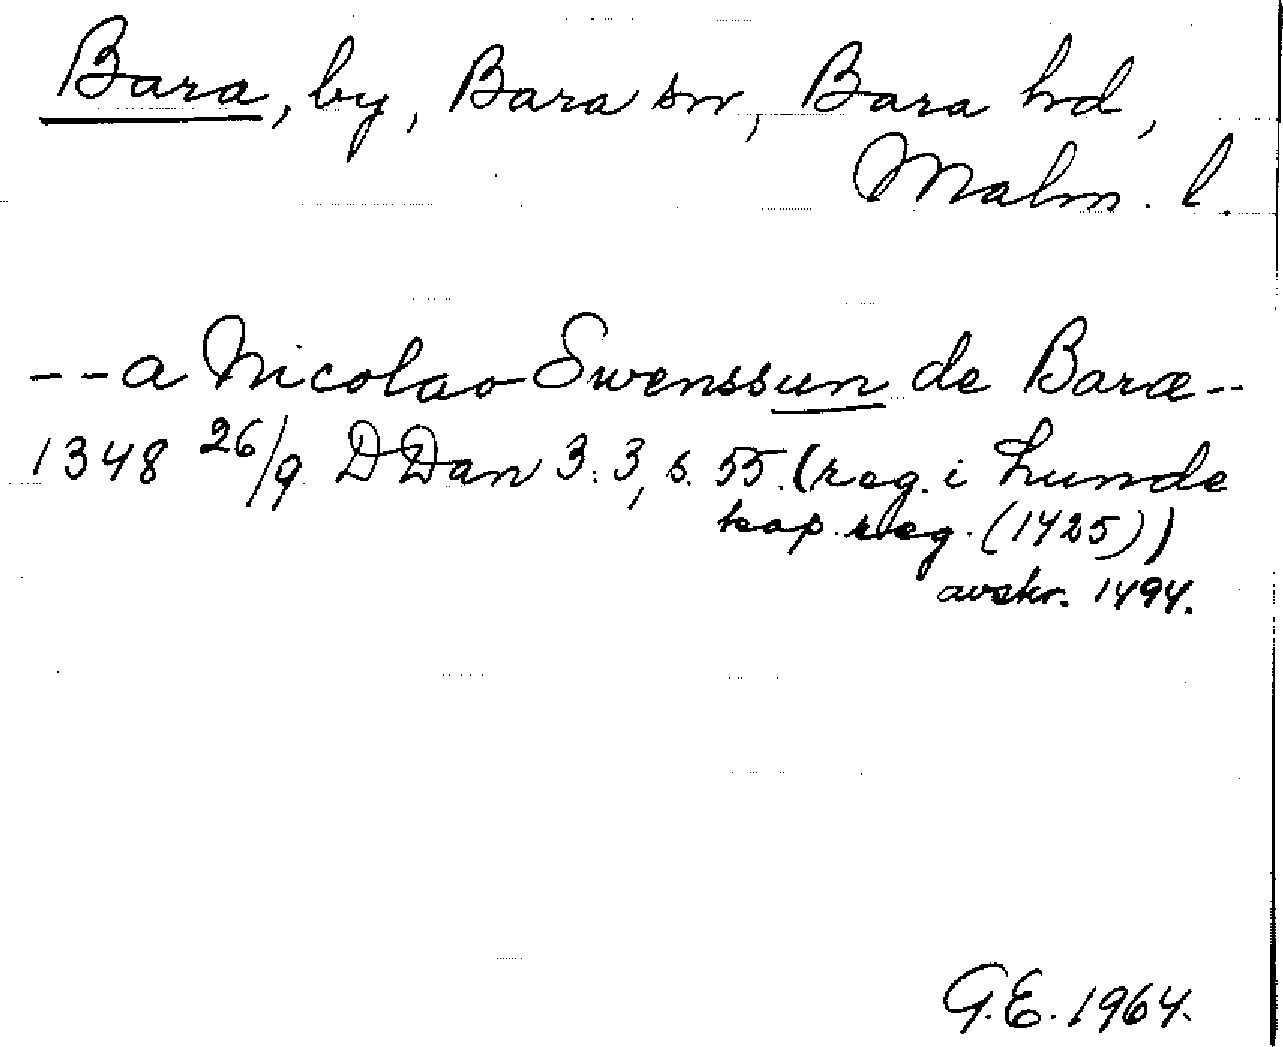 Bara, by, Bara sn, Bara hd,
Malm. l.
-- a Nicolao Swenssun de Baræ --
1348 26/9 DDan 3:3, s. 55 (reg. i Lunde
kap. reg. (1425))
avskr. 1494.
G.E. 1964.